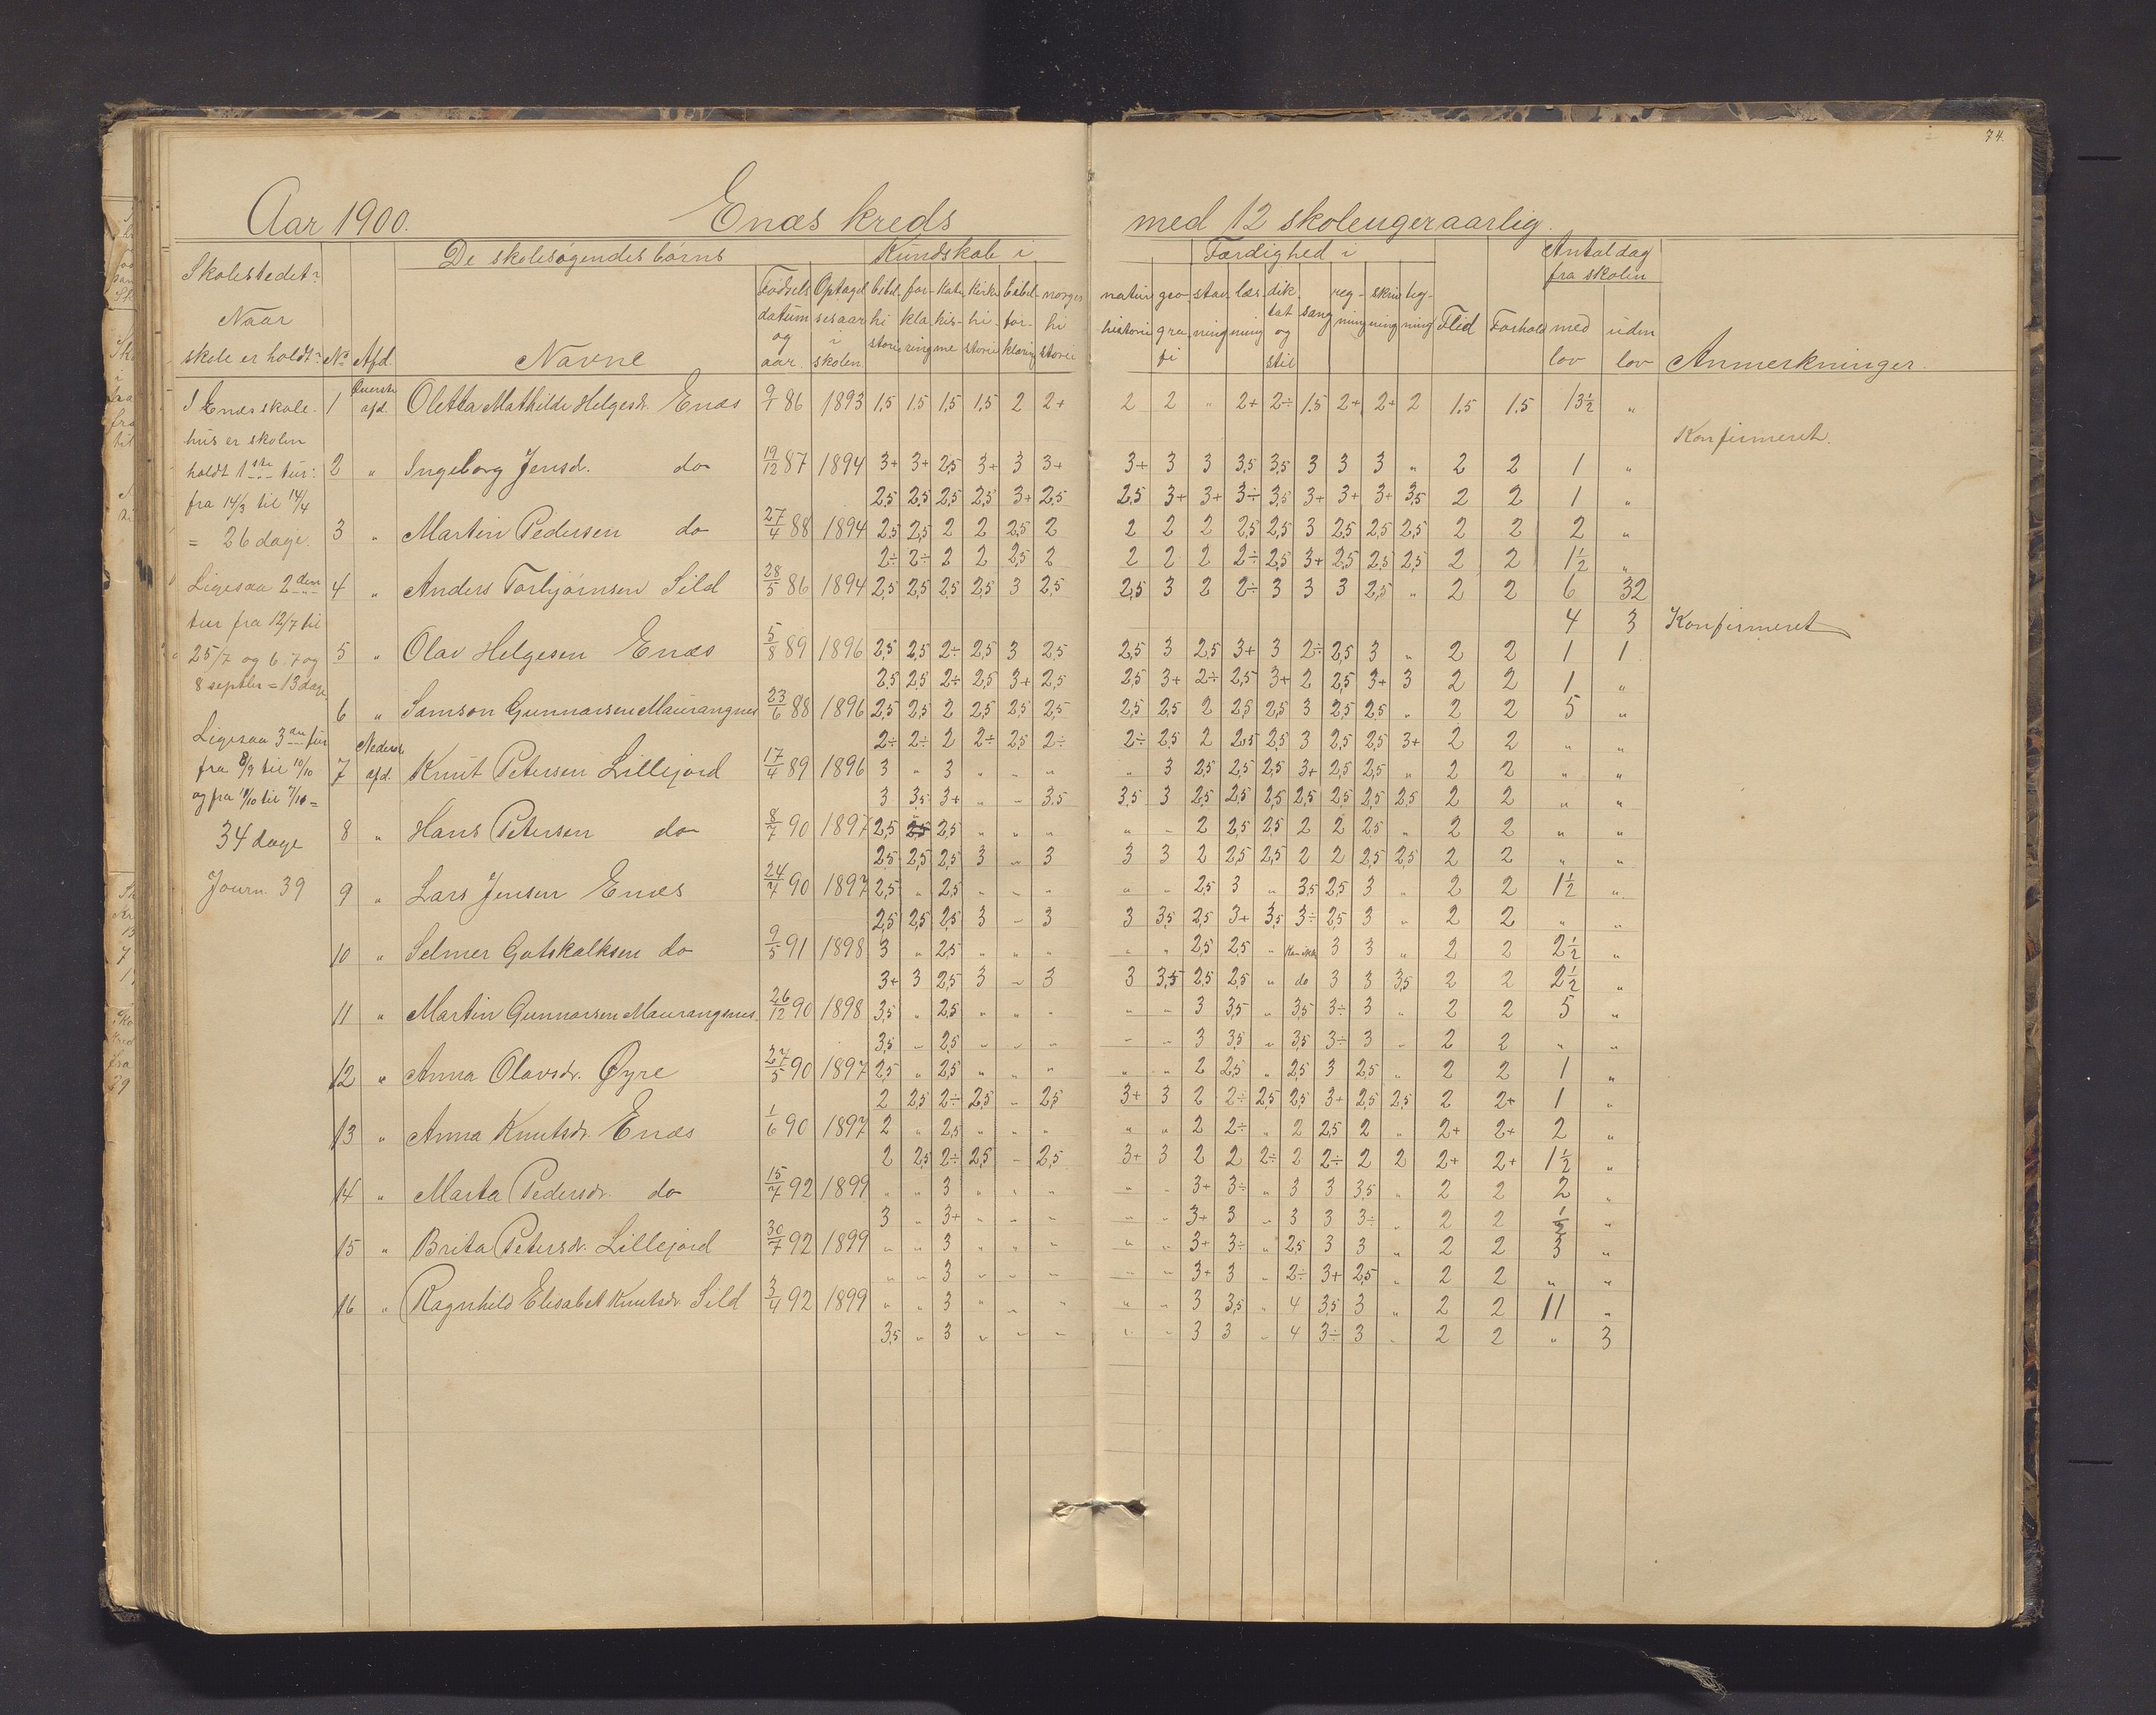 74.
Aar 1900. Enæs kreds med 12 skoleuger aarlig.
De skolesøgendes børns Kundskab i Færdighed i Antal dag fra skolen
Skolestedet? Naar skole er holdt? No Afd. Navne Fødselsdatum og aar. Optagelsesaar i skolen bibelhistorie forklaring katekisme kirkehistorie bibelforklaring norges historie naturhistorie geografi stavning læsning diktat og stil sang regning skrivning tegning Flid Forhold med lov uden lov Anmerkninger.
I Enæs skole-
hus er skolen
holdt 1ste tur:
fra 14/3 til 14/4
= 26 dage.
Ligesaa 2den
tur fra 12/7 til
25/7 og 6. 7 og
8 septbr = 13 dage
Ligesaa 3die tur
34 dage
Journ. 39
1 Øverste afd. Oletta Mathilde Helgesdr. Enæs 9/7 86 1893 1,5 1,5 1,5 1,5 2 2+ 2 2 " 2+ 2÷ 1,5 2+ 2+ 2 1,5 1,5 13½ "
Konfirmeret.
2 " Ingeborg Jensd. do 19/12 87 1894 3+ 3+ 2,5 3+ 3 3+ 3+ 3 3 3,5 3,5 3 3 3 " 2 2 1 "
2,5 2,5 2,5 2,5 3+ 2,5 2,5 3+ 3+ 3÷ 3,5 3+ 3+ 3+ 3,5 2 2 1 "
3 " Martin Pedersen do 27/4 88 1894 2,5 2,5 2 2 2,5 2 2 2 2 2,5 2,5 3 2,5 2,5 2,5 2 2 2 "
2÷ 2÷ 2 2 2,5 2 2 2 2 2÷ 2,5 3+ 2,5 2,5 2,5 2 2 1½ "
4 " Anders Torbjørnsen Sild 28/5 86 1894 2,5 2,5 2,5 2,5 3 2,5 2,5 3 2 2÷ 3 3 3 2,5 " 2 2 6 32
4 3 Konfirmeret
5 " Olav Helgesen Enæs 5/8 89 1896 2,5 2,5 2÷ 2,5 3 2,5 2,5 3 2,5 3+ 3 2÷ 2,5 3 " 2 2 1 1
2,5 2,5 2÷ 2,5 3+ 2,5 2,5 3+ 2÷ 2,5 3+ 2 2,5 3+ 3 2 2 1 "
6 " Samson Gunnarsen Maurangnes 23/6 88 1896 2,5 2,5 2 2,5 2,5 2,5 2,5 2,5 2 2,5 2,5 3 2,5 2,5 " 2 2 5 "
2÷ 2÷ 2 2÷ 2,5 2÷ 2÷ 2,5 2 2,5 2,5 3 2,5 2,5 3+ 2 2 " "
7 Nederste afd. Knut Petersen Lillejord 17/4 89 1896 3 " 3 " " " " 3 2,5 2,5 2,5 3+ 2,5 2,5 " 2 2 " "
3 3,5 3+ " " 3,5 3,5 3 2,5 2,5 2,5 2,5 2,5 2,5 2,5 2 2 " "
8 " Hans Petersen do 8/7 90 1897 2,5 2,5 2,5 " " " " " 2 2,5 2,5 2 2 2,5 " 2 2 " "
2,5 2,5 2,5 3 " 3 3 3 2 2,5 2,5 2 2 2,5 2,5 2 2 " "
9 " Lars Jensen Enæs 24/7 90 1897 2,5 " 2,5 " " " " " 2,5 3 " 3,5 2,5 3 " 2 2 1½ "
2,5 2,5 2,5 3 " 3 3 3,5 2,5 3+ 3,5 3÷ 2,5 3 " 2 2 " "
10 " Selmer Gotskalksen do 9/5 91 1898 3 " 2,5 " " " " " 2,5 2,5 " Kan ikke 3 3 " 2 2 2½ "
3+ 3 2,5 3 " 3 3 3,5 2,5 2,5 " do 3 3 3,5 2 2 2½ "
11 " Martin Gunnarsen Maurangsnes 26/12 90 1898 3,5 " 2,5 " " " " " 3 3,5 " 3,5 3÷ 3 " 2 2 5 "
3,5 " 2,5 " " " " " 3 3,5 " 3,5 3÷ 3 " 2 2 " "
12 " Anna Olavsdr. Øyre 27/5 90 1897 2,5 " 2,5 " " " " " 2 2,5 " 2,5 3 2,5 " 2 2 1 "
2 2,5 2÷ 2,5 " 2,5 3+ 3 2 2÷ 2,5 2,5 3+ 2,5 2,5 2 2+ 1 "
13 " Anna Knutsdr. Enæs 1/6 90 1897 2 " 2,5 " " " " " 2 2÷ " 2 2,5 2 " 2+ 2+ 2 "
2 2,5 2÷ 2,5 " 2,5 3+ 3 2 2 2÷ 2 2÷ 2 2 2+ 2+ 1½ "
14 " Marta Pedersdr. do 15/7 92 1899 " " 3 " " " " " 3+ 3÷ " 3 3 3,5 " 2 2 2 "
3 " 3+ " " " " " 3+ 3 " 3 3 3÷ " 2 2 ½ "
15 " Brita Petersdr. Lillejord 30/7 92 1899 " " 3 " " " " " 3+ 3÷ " 2,5 3 3 " 2 2 3 "
" " 3 " " " " " 3+ 3 " 2÷ 3+ 2,5 " 2 2 " "
16 " Ragnhild Elisabet Knutsdr. Sild 3/4 92 1899 " " 3 " " " " " 3 3,5 " 4 3,5 3 " 2 2 11 "
3,5 " 3 " " " " " 3 3 " 4 3÷ 3 " 2 2 " 3